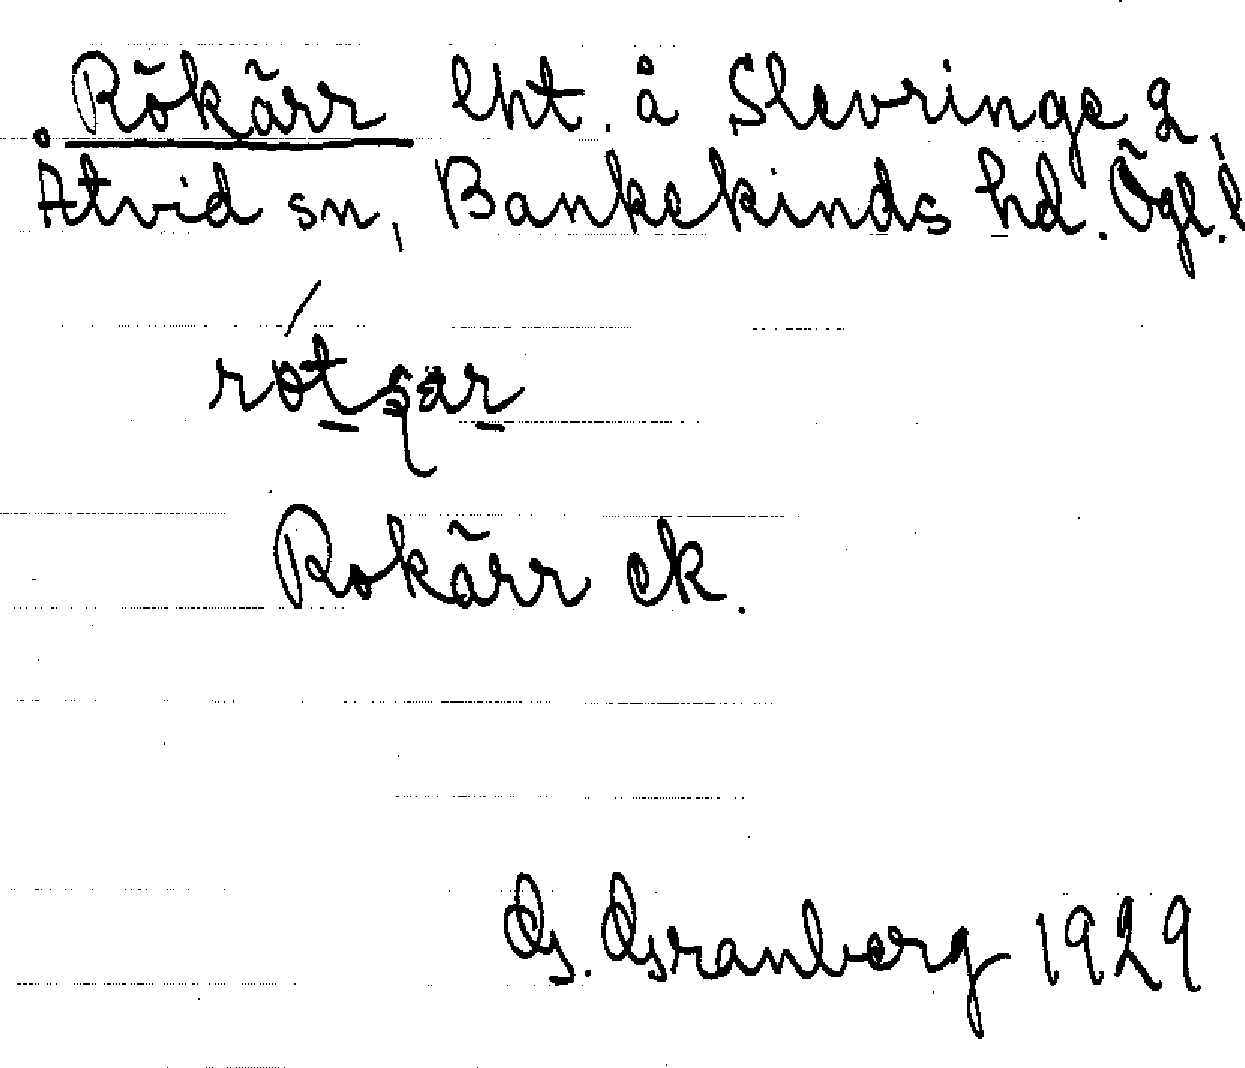 Rökärr lht. å Slevringe 2,
Åtvid sn, Bankekinds hd. Ögl. l
Rokärr ek.
G. Granberg 1929